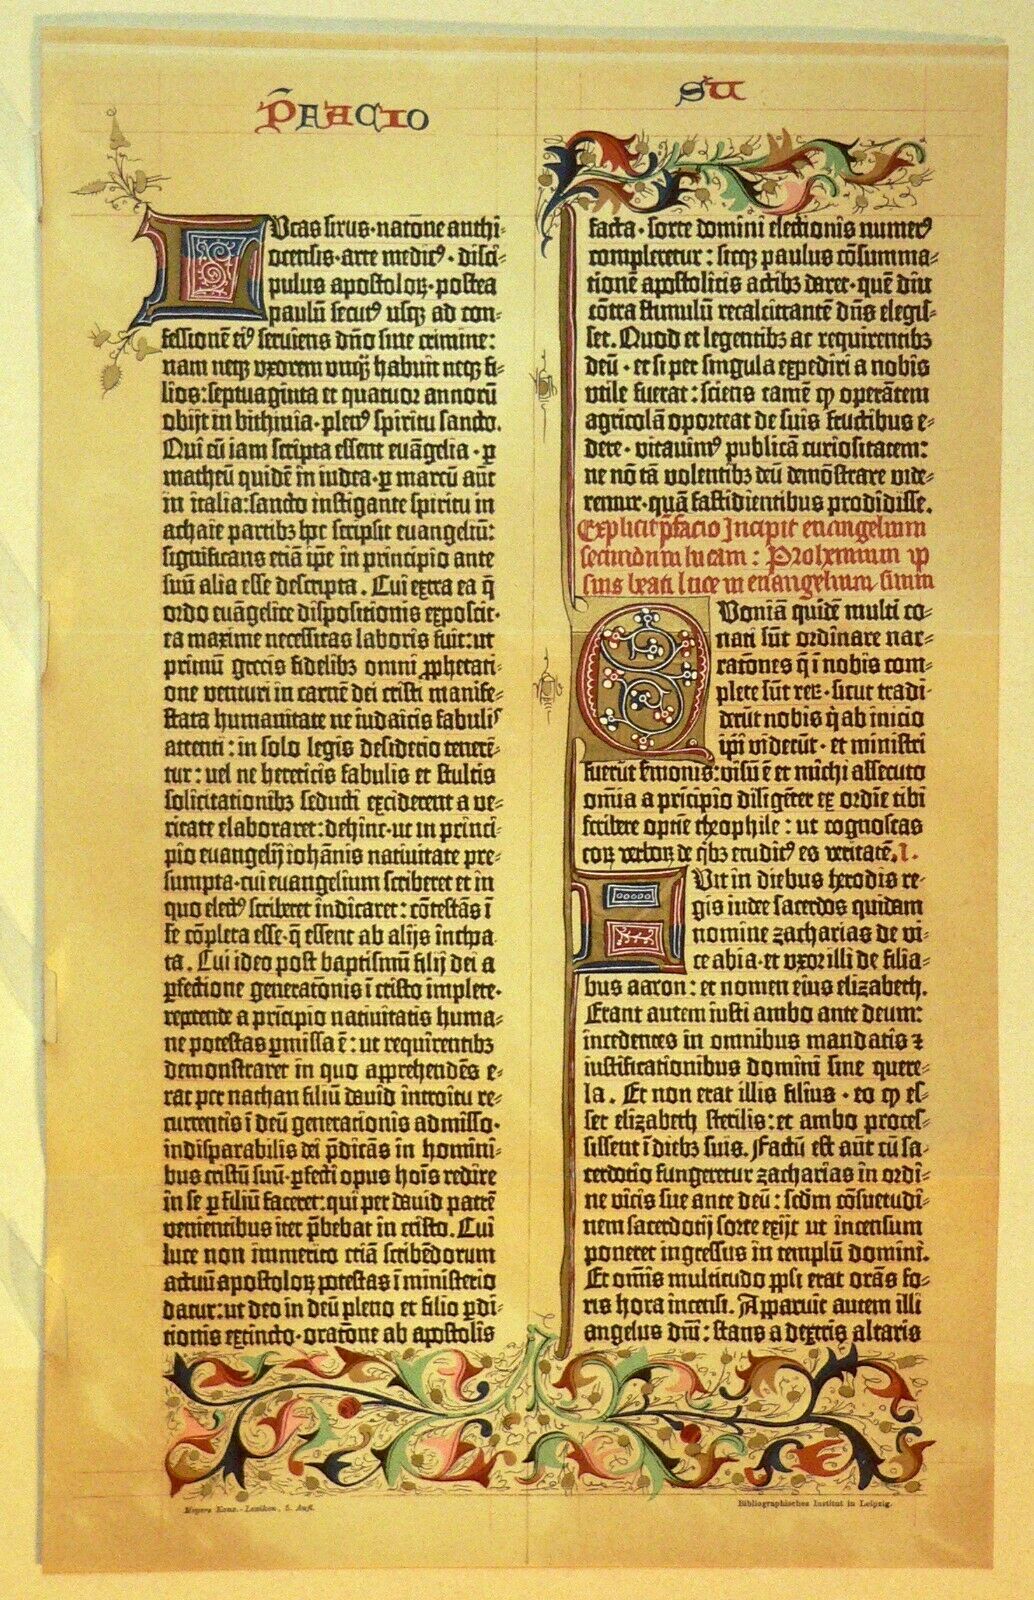 P̃FACIO
SU
LVcas sirus·natōne anthi-
ocensis·arte medicꝰ·disci-
pulus apostoloꝝ·postea
paulū secutꝰ usqꝫ ad con-
fessionē eiꝰ serviens dn̄o sine crimine:
nam neqꝫ uxorem unqꝫ habuit neqꝫ fi-
lios: septuaginta et quatuor annorū
obijt in bithinia·plenꝰ spiritu sancto.
Qui cū iam scripta essent euāgelia·ꝑ
matheū quidē in iudea·ꝑ marcū aūt
in italia: sancto instigante spiritu in
achaie partibꝫ hoc scripsit euangeliū:
significans etiā ip̄e in principio ante
suū alia esse descripta. Cui extra ea q̄
ordo euāgelice dispositionis exposcit·
ea maxime necessitas laboris fuit: ut
primū grecis fidelibꝫ omni ꝓphetati-
one venturi in carnē dei cristi manife-
stata humanitate ne iudaicis fabulis
attenti: in solo legis desiderio tenerē-
tur: uel ne hereticis fabulis et stultis
solicitationibꝫ seducti exciderent a ve-
ritate elaboraret: dehinc·ut in princi-
pio euangelij iohānis nativitate pre-
sumpta·cui euangelium scriberet et in
quo electꝰ scriberet indicaret: cōtestās ī
se cōpleta esse·q̄ essent ab alijs inchoa-
ta. Cui ideo post baptismū filij dei a
ꝑfectione generatōnis ī cristo implete·
repetende a principio nativitatis huma-
ne potestas ꝑmissa ē: ut requirentibꝫ
demonstraret in quo apprehendēs e-
rat per nathan filiū david introitu re-
currentis ī deū generationis admisso·
indisparabilis dei p̄dicās in homini-
bus cristū suū·ꝑfecti opus hoīs redire
in se ꝑ filiū faceret: qui per david patrē
venientibus iter p̄bebat in cristo. Cui
luce non immerito etiā scribēdorum
actuū apostoloꝝ potestas ī ministerio
datur: ut deo in deū pleno et filio ꝑdi-
tionis extincto·oratōne ab apostolis
facta·sorte domini electionis numerꝰ
compleretur: sicqꝫ paulus cōsumma-
tionē apostolicis actibꝫ daret·quē diu
cōtra stimulū recalcitrantē dn̄s elegis-
set. Quod et legentibꝫ ac requirentibꝫ
deū·et si per singula expediri a nobis
utile fuerat: sciens tamē ꝙ operātem
agricolā oporteat de suis fructibus e-
dere·vitavimꝰ publicā curiositatem:
ne nō tā volentibꝫ deū demōstrare vide-
remur·quā fastidientibus prodidisse.
Explicit p̄facio Incipit euangelium
secundum lucam: Prohemium ip-
sius beati luce in euangelium suum
QVoniā quidē multi co-
nati sūt ordinare nar-
ratōnes q̄ ī nobis com-
plete sūt reꝝ·sicut tradi-
derūt nobis q̇ ab inicio
ip̄i viderūt·et ministri
fuerūt s̄monis: visū ē et michi assecuto
om̄ia a prīcipio diligēter ex ordīe tibi
scribere optīe theophile: ut cognoscas
eoꝝ verboꝝ de q̇bꝫ eruditꝰ es veritatē. I.
FVit in diebus herodis re-
gis iudee sacerdos quidam
nomine zacharias de vi-
ce abia·et uxor illi de filia-
bus aaron: et nomen eius elizabeth.
Erant autem iusti ambo ante deum:
incedentes in omnibus mandatis ⁊
iustificationibus domini sine quere-
la. Et non erat illis filius·eo ꝙ es-
set elizabeth sterilis: et ambo proces-
sissent ī diebꝫ suis. Factū est aūt cū sa-
cerdotio fungeretur zacharias in ordi-
ne vicis sue ante deū: scdm̄ cōsuetudi-
nem sacerdotij sorte exijt ut incensum
poneret ingressus in templū domini.
Et om̄is multitudo ꝓpli erat orās fo-
ris hora incensi. Apparuit autem illi
angelus dn̄i: stans a dextris altaris
Meyers Konv.-Lexikon, 5. Aufl.
Bibliographisches Institut in Leipzig.